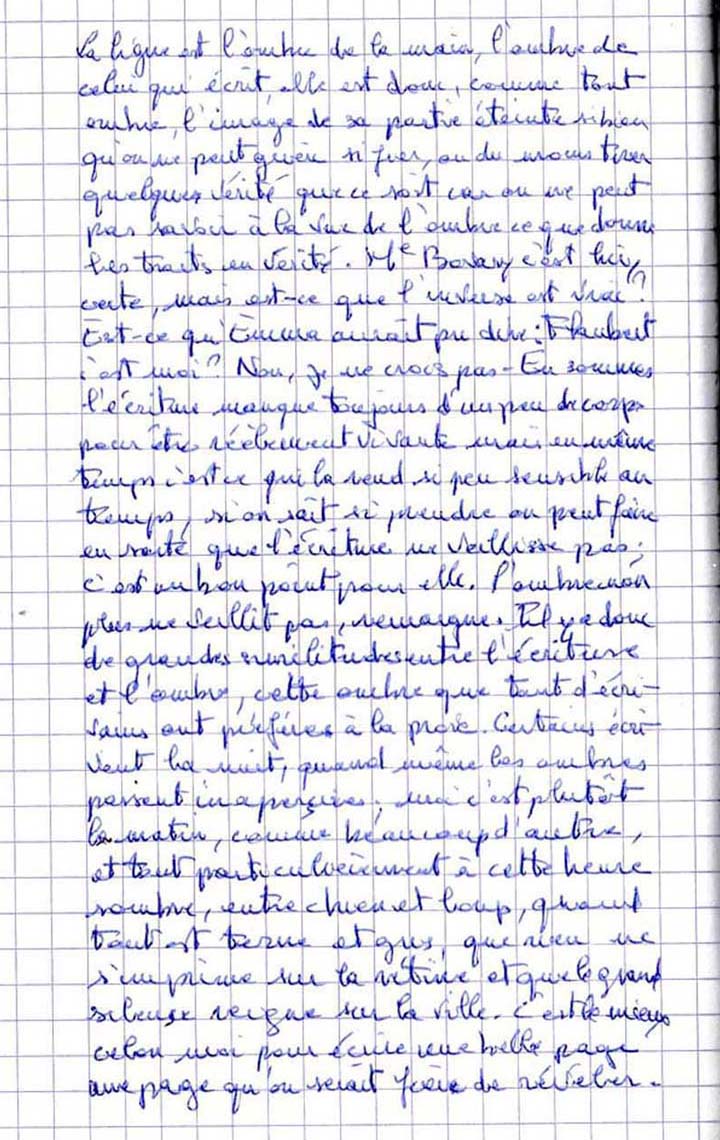 La ligne est l'ombre de la main, l'ombre de
celui qui écrit, elle est donc, comme tout
ombre, l'image de sa partie éteinte si bien
qu'on ne peut guère si fier, ou du moins tirer
quelques vérité que ce soit car on ne peut
pas savoir à la vue de l'ombre ce que donne
les traits en vérité. Me Bovary c'est lui,
certe, mais est-ce que l'inverse est vrai ?
Est-ce qu'Emma aurait pu dire : Flaubert
c'est moi ? Non, je ne crois pas - En sommes
l'écriture manque toujours d'un peu de corps
pour être réèlement vivante mais en même
temps c'est ce qui la rend si peu sensible au
temps, si on sait si prendre on peut faire
en sorte que l'écriture ne veillisse pas ;
c'est un bon point pour elle. L'ombre non
plus ne veillit pas, remarque. Il y a donc
de grandes similitudes entre l'écriture
et l'ombre, cette ombre que tant d'écri-
vains ont préférés à la proie. Certains écri-
vent la nuit, quand même les ombres
passent inaperçues, moi c'est plutôt
le matin, comme beaucoup d'autre,
et tout particulvièrement à cette heure
sombre, entre chien et loup, quand
tout est terne et gris, que rien ne
s'imprime sur la rétine et que le grand
silence reigne sur la ville. C'est le mieux
celon moi pour écrire une belle page
une page qu'on serait fière de révéler.